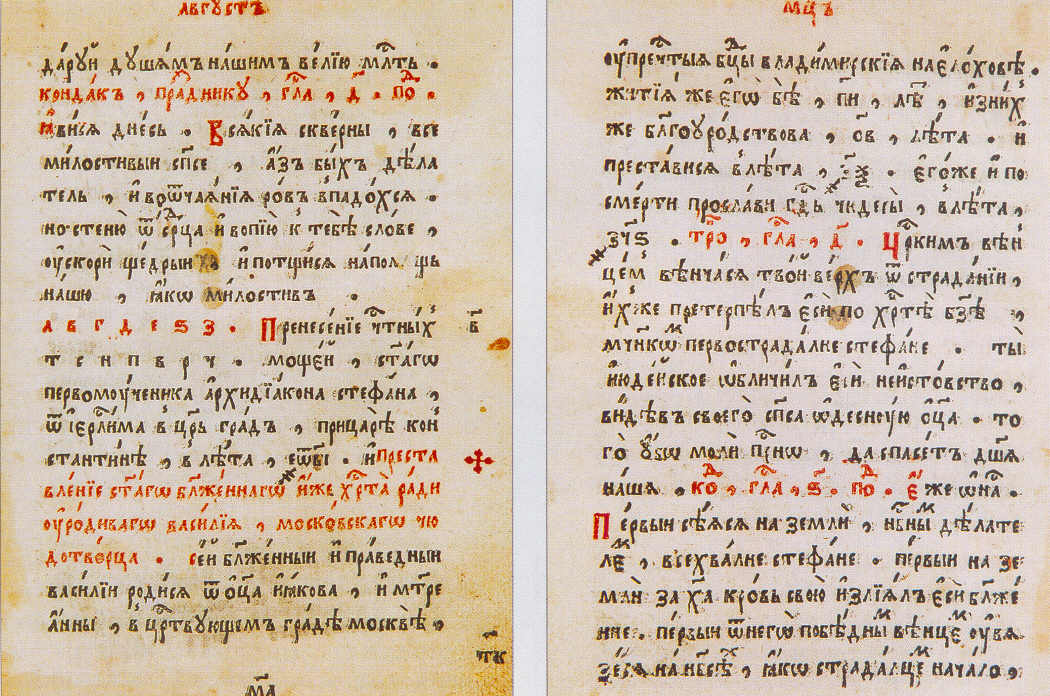 АВГУСТЪ
да́руй душа́мъ на́шимъ ве́лїю млⷭ҇ть .
конда́къ , пра́зднику , гла́ , д҃ . по́ⷣ .
ꙗ҆ви́лсѧ дне́сь . Всѧ́кїѧ скве́рны , все
ми́лостивыи сп҃се , а҆́зъ бы́хъ дѣ́ла
тель , и҆ во ѿчаѧ́нїѧ ро́въ впадо́хсѧ .
но стеню̀ ѿ се́рⷣца и҆ вопїю̀ к̾ тебѣ̀ сло́ве ,
оу҆скорѝ ще́дрыи и҆ потщи́сѧ на по́мощь
на́шю , ꙗ҆́кѡ ми́лостивъ .
а в г д е ѕ з . Пренесе́нїе чⷭ҇тны́хъ
т с и п в р ч . моще́й , ст҃а́гѡ
первомоу́ченика а҆рхидїа́кона стефа́на ,
ѿ і҆ерⷭ҇ли́ма в̾ цр҃ь гра́дъ , при ца́рѣ ко́н
станти́нѣ , в̾ лѣ́та , еѡ҃ві . и҆ преста
вле́нїе ст҃а́гѡ бл҃же́ннагѡ и҆́же хрⷭ҇та̀ ра́ди
оу҆ро́диваго васи́лїѧ , моско́вскаго чю
дотво́рца . се́й бл҃же́нныи и҆ пра́ведныи
васи́лїи роди́сѧ ѿ ѻ҆ц҃а̀ и҆ꙗ́кова , и҆ мт҃ре
а҆́нны , в̾ црⷭ҇твующемъ гра́дѣ москвѣ̀ ,
в҃
тк
ма
мцⷭ҇ъ
оу҆ пречⷭ҇тыѧ бцⷣы владими́рскїѧ на е҆ло́ховѣ .
житїѧ̀ же є҆гѡ̀ бѣ̀ , пи , лѣ́ⷮ , и҆з ни́хъ
же бл҃гоуро́дствова , ов , лѣ́та . и҆
преста́висѧ в̾ лѣ́та , ҂зѯ . є҆го́же и҆ по
сме́рти просла́ви гдⷭ҇ь чюдесы̀ , в̾ лѣ́та ,
зч҃ѕ . тро́ , гла́ , д҃ . Цр҃кимъ вѣн
це́мъ вѣнча́сѧ тво́й ве́рхъ ѿ страда́нїи ,
и҆́хже претерпѣ́лъ є҆сѝ по хрⷭ҇тѣ̀ бз҃ѣ ,
мч҃никѡⷨ первострада́лне стефа́не . ты̀
и҆юде́йское ѡ҆бличи́лъ є҆сѝ неи́стовство ,
ви́дѣвъ своего̀ сп҃са ѡ҆десну́ю ѻ҆ц҃а̀ . то
го̀ оу҆́бѡ молѝ при́снѡ , да спасе́тъ дш҃а
на́шѧ . ко́ⷣ , гла́ , ѕ҃ . по́ⷣ . Е҆́же ѡ҆ на́ .
Пе́рвыи сѣ́ѧсѧ на землѝ , нбⷭ҇ныⷨ дѣ́лате
леⷨ , всехва́лне стефа́не . пе́рвыи на зе
млѝ за хⷭ҇а̀ кро́вь свою̀ и҆злїѧ́лъ є҆сѝ бл҃же́
нне . пе́рвыи ѿ негѡ̀ побѣ́дныⷨ вѣнце́ⷨ оу҆вѧ
зе́сѧ на нбⷭ҇сѣ́хъ , ꙗ҆́кѡ страда́лцеⷨ нача́ло ,